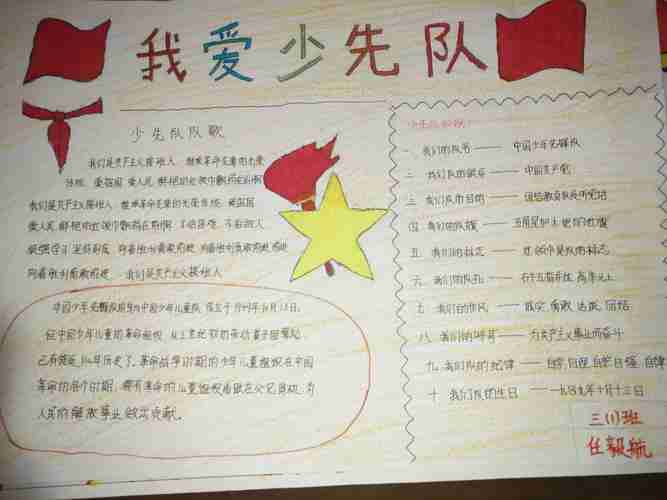 我爱少先队
少先队队歌
我们是共产主义接班人 继承革命先辈的光荣
传统 爱祖国 爱人民 鲜艳的红领巾飘扬在前胸
我们是共产主义接班人 继承革命先辈的光荣传统 爱祖国
爱人民 鲜艳的红领巾飘扬在前胸 不怕困难 不怕敌人
顽强学习 坚决斗争 向着胜利勇敢前进 向着胜利勇敢前进
向着胜利勇敢前进 我们是共产主义接班人
中国少年先锋队前身为中国少年儿童队 成立于1949年10月13日
但中国少年儿童的革命组织 从上世纪20的劳动童子团
已有
革命战争时期的少年儿童组织在中国
革命的各个时期 都有革命的儿童组织
人民的解放事业做出贡献。
一 我们的队名 —— 中国少年先锋队
二 我们队的 —— 中国共产党
三 我们队的目的 —— 团结教育
四 我们的队旗 —— 五角星加火炬的红旗
五 我们的标志 —— 红领巾是队的标志
六 我们的队礼 —— 右手五指并拢 高举头上
七 我们的作风 —— 诚实 勇敢 活泼 团结
八 我们的呼号 —— 为共产主义事业而奋斗
九 我们队的纪律 —— 自学 自理 自护 自强 自律
十 我们队的生日 —— 一九四九年十月十三日
三(1)班
任毅航